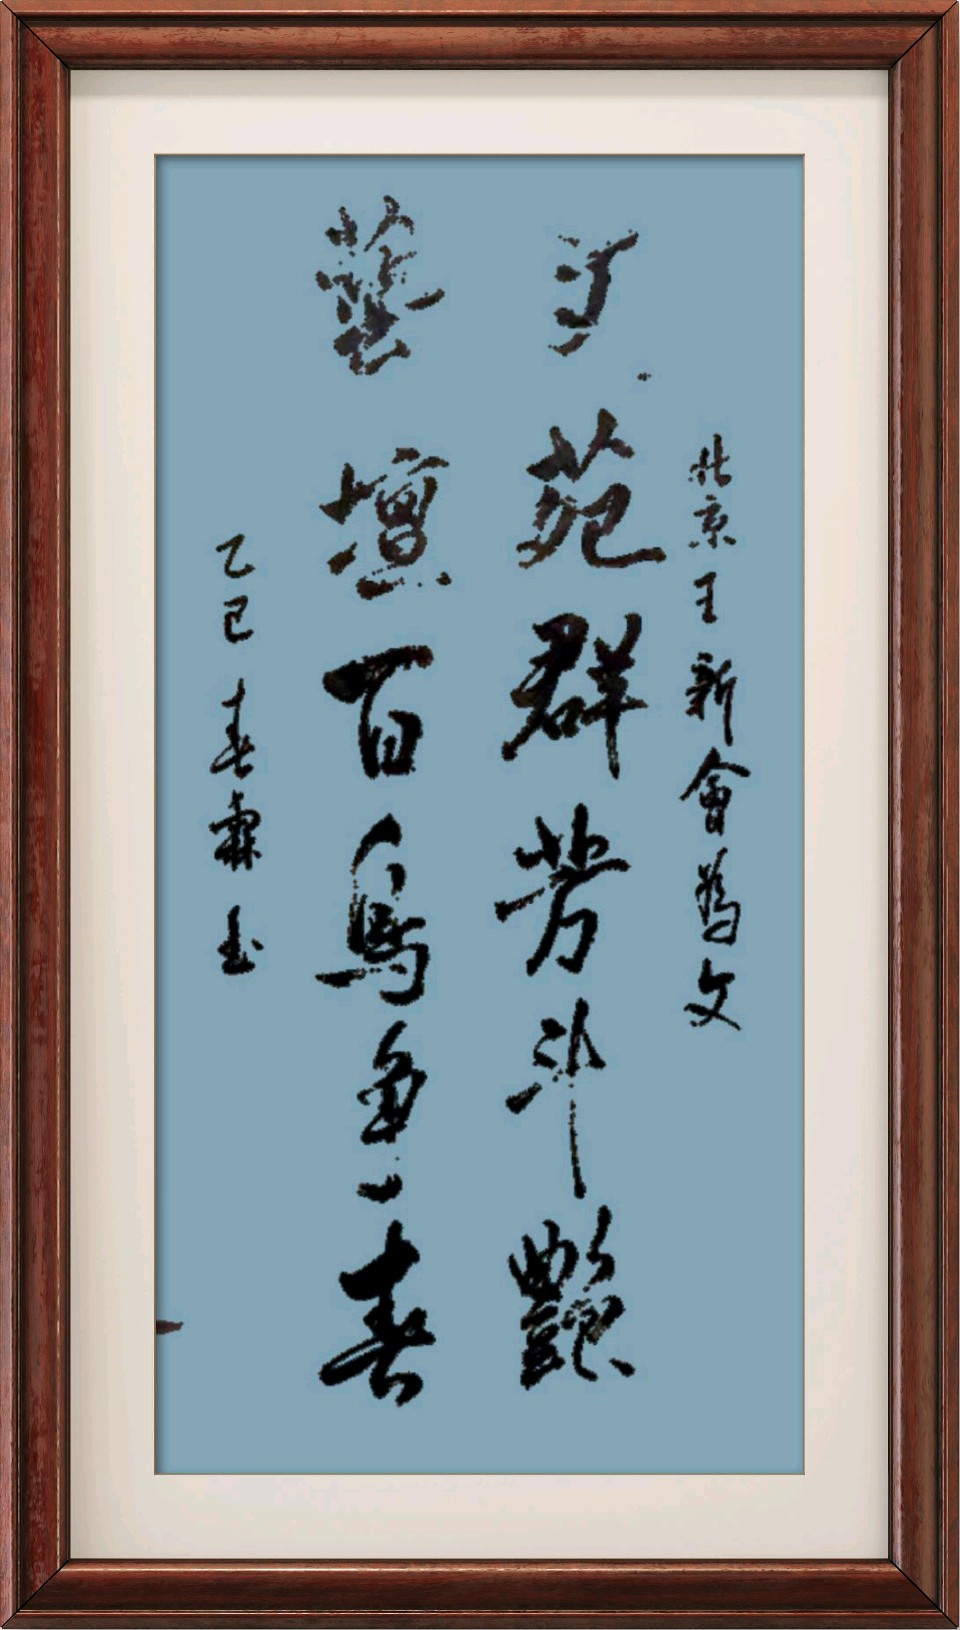 北京王新會为文
苑群芳斗艷
藝壇百鳥争春
乙巳春霖书